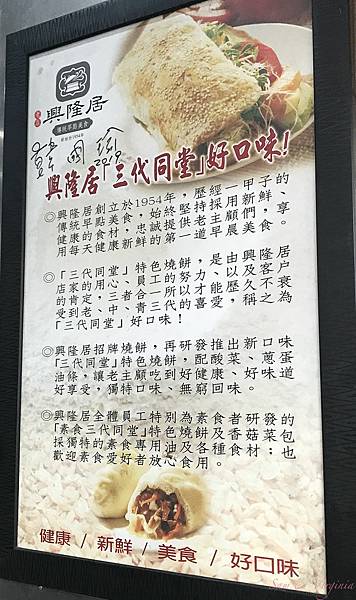 興隆居
傳統早點美食
韓國瑜
興隆居「三代同堂」好口味!
◎興隆居創立於1954年，歷經一甲子的
傳統早點美食，始終堅持採用新鮮、
健康的食材，忠誠提供老主顧們，享
用每天健康新鮮的第一道早晨美食。
◎「三代同堂」特色燒餅，是由興隆居
店家的用心、員工的努力、以及客户
的肯定，三者合一所以才能歷久不衰
受到老、中、青三代的喜愛，稱之為
「三代同堂」好口味！
◎興隆居招牌燒餅，再研發推出新口味
「三代同堂」特色燒餅，配酸菜、蔥蛋
油條，讓老主顧吃到好健康、好味道
好享受，獨特口味、無窮回味。
◎興隆居全體員工特別為素食者研發的
「素食三代同堂」特色燒餅及香菇菜包
採獨特的素食專用油及各種食材；也
歡迎素食愛好者放心食用。
健康 / 新鮮 / 美食 / 好口味